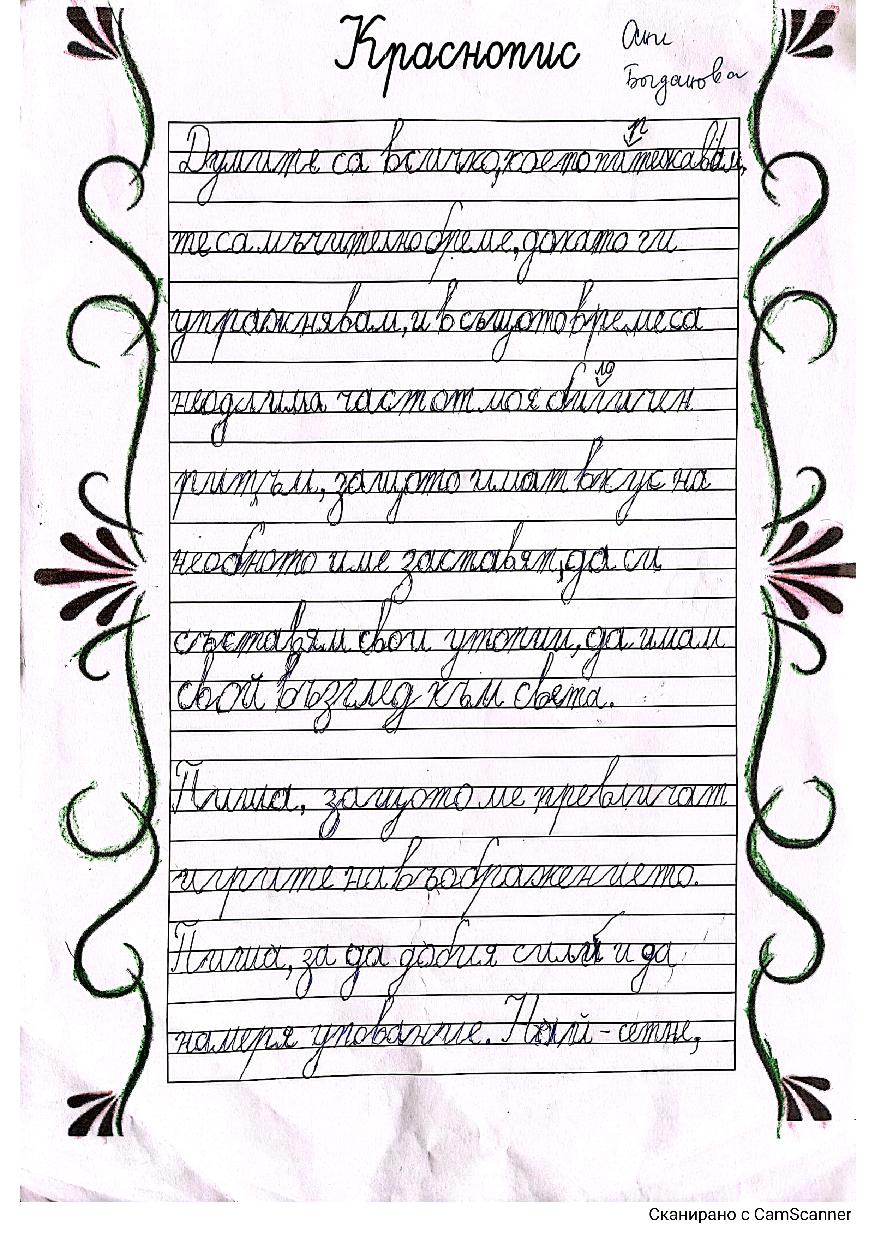 Краснопис
Ани
Богданова
Думите са всичко, което притежавам,
те са мъчително бреме, докато ги
упражнявам, и в същото време са
неделима част от моя биологичен
ритъм, защото имат вкус на
необятното и ме заставят, да си
съставям свои утопии, да имам
свой възглед към света.
Пиша, защото ме превличат
игрите на въображението.
Пиша, за да добия силы и да
намеря упование. Най-сетне,
Сканирано с CamScanner